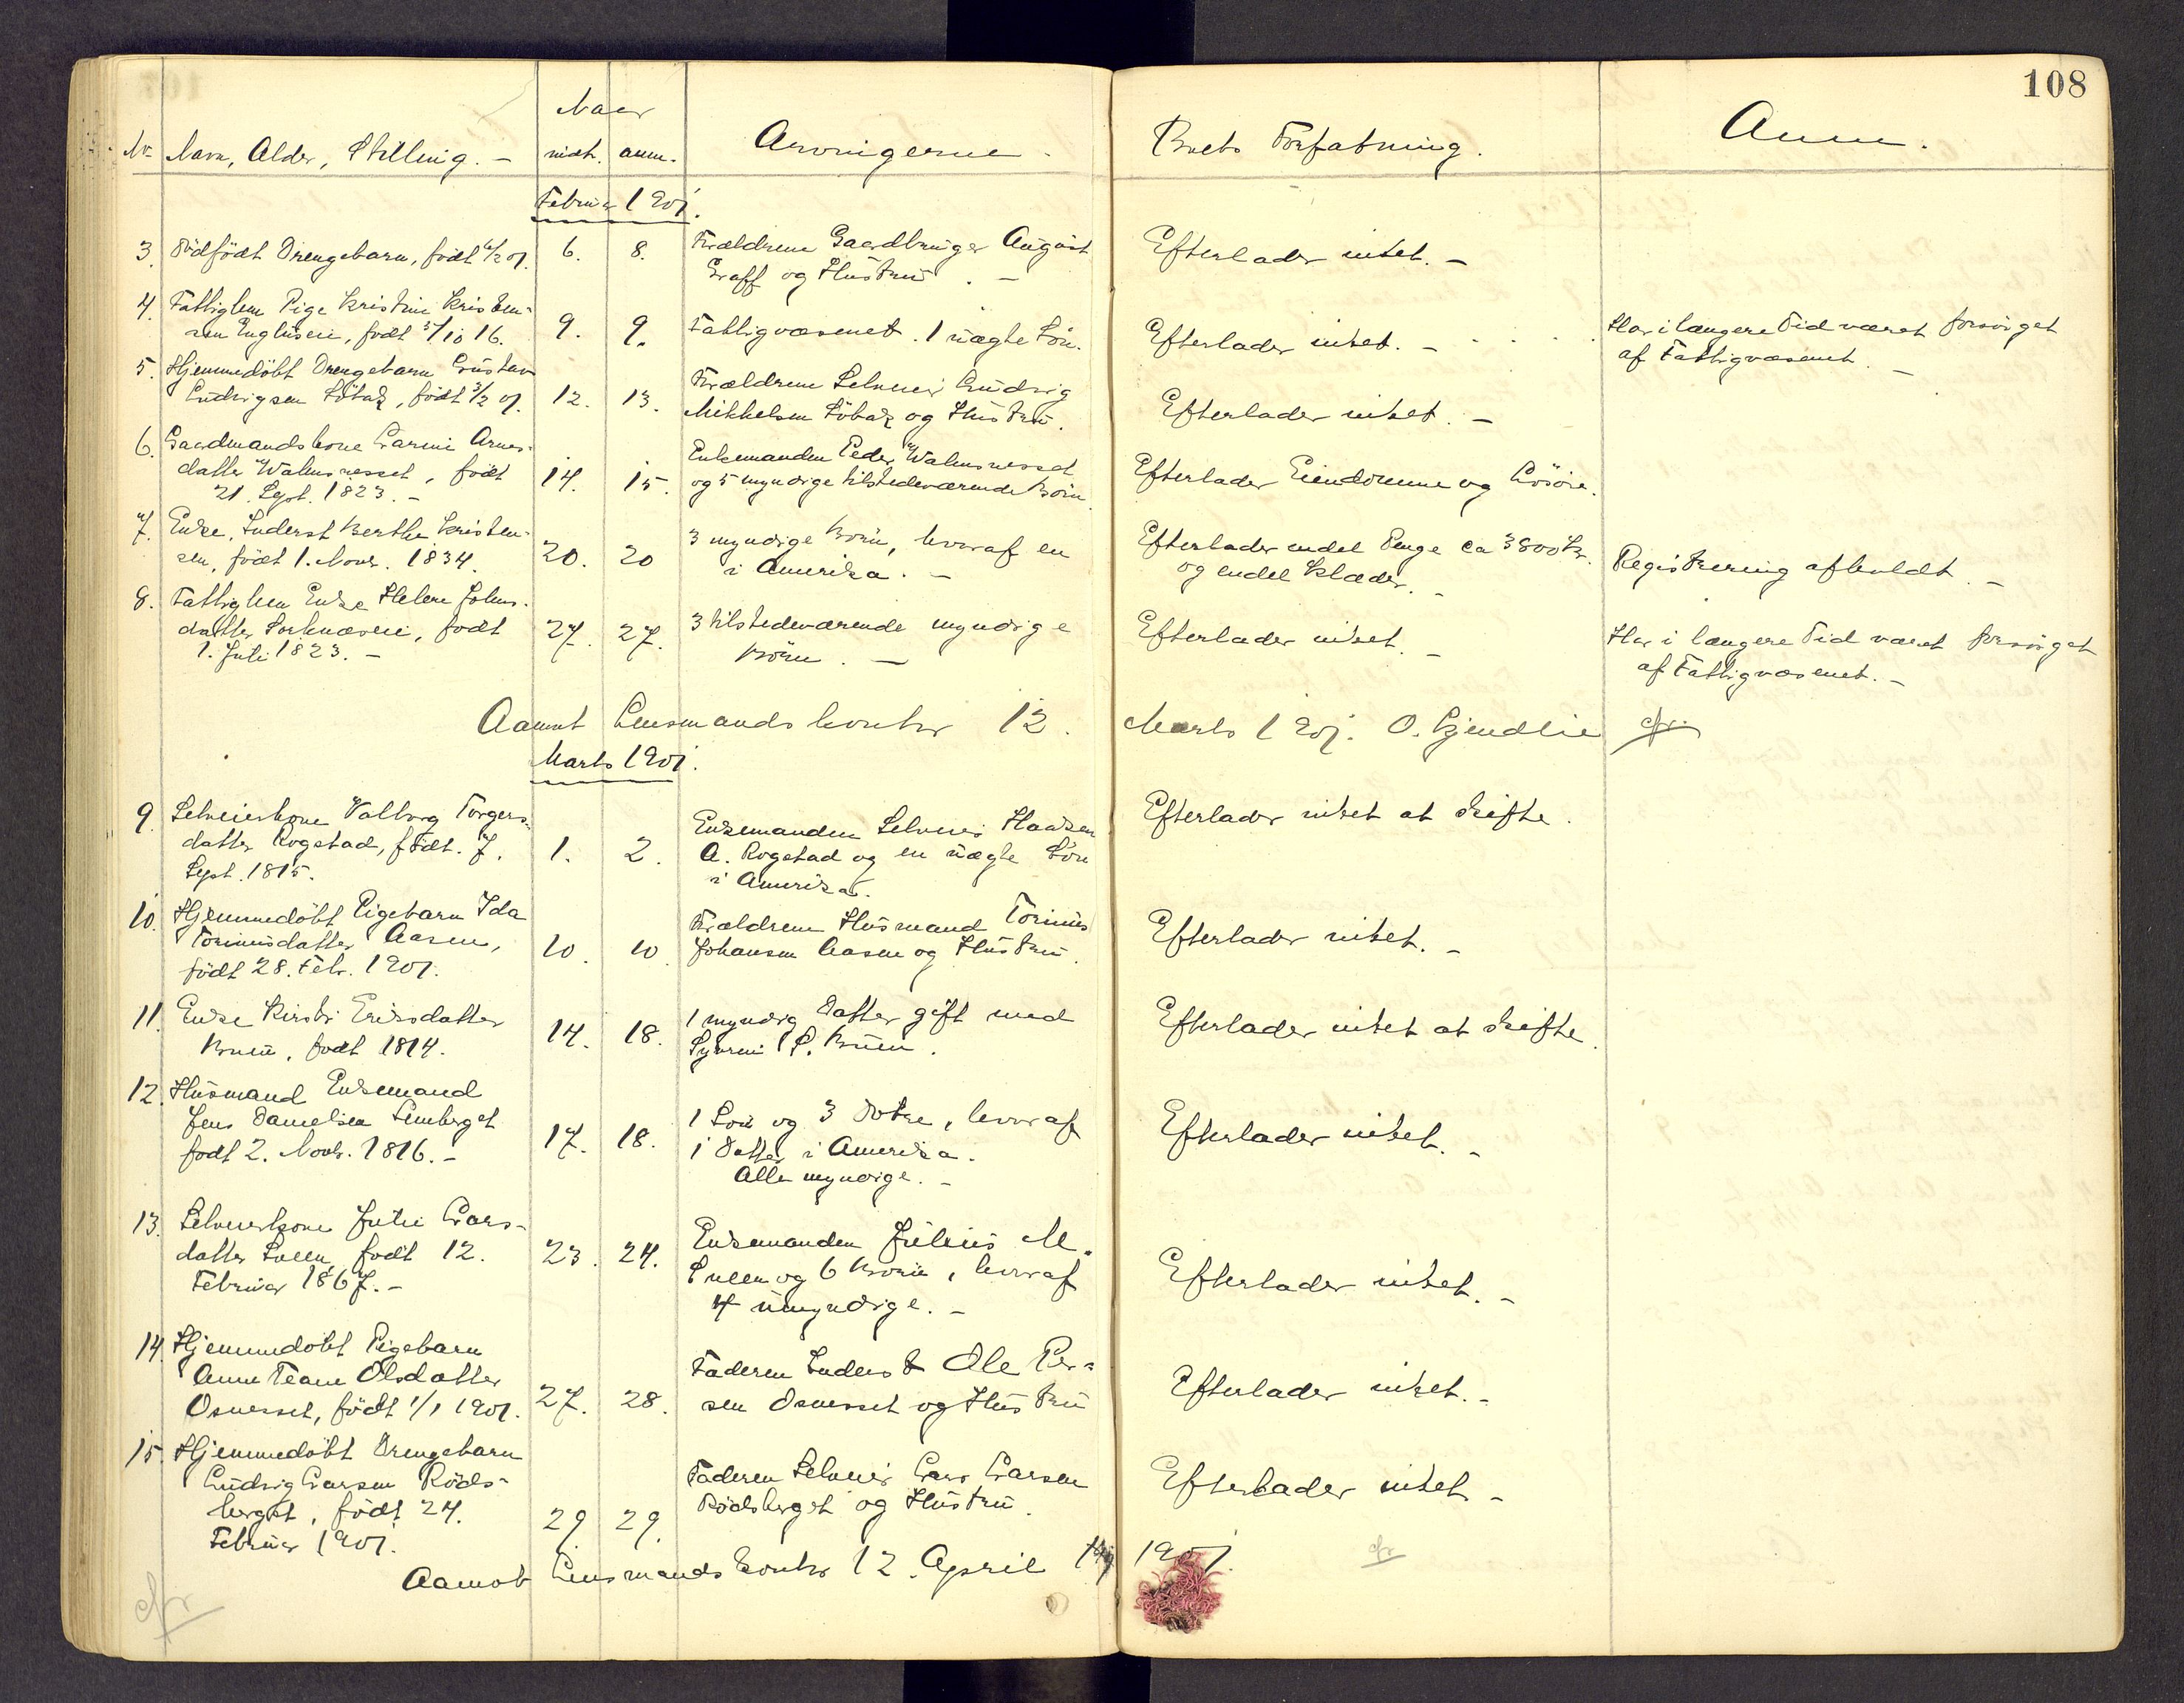 108
Naar
No Navn, Alder, Stilling. - indtr. anm. Arvingerne. Boets Forfatning. Anm.
Februar 1901.
3. Dødfødt Drengebarn, født 6/2 01. 6. 8. Forældrene Gaardbruger August
Graff og Hustru. - Efterlader intet. -
4. Fattiglem Pige Kristine Kristen-
sen Englusen, født 3/10 16. 9. 9. Fattigvæsenet. 1 uægte Søn. Efterlader intet. - Har i længere Tid været forsørget
af Fattigvæsenet. -
5. Hjemmedøbt Drengebarn Gustav
Ludvigsen Løbak, født 3/2 01. 12. 13. Forældrene Selveier Ludvig
Mikkelsen Løbak og Hustru. Efterlader intet. -
6. Gaardmandskone Karine Arnes-
datter Walmsnesset, født
21. Sept. 1823. - 14. 15. Enkemanden Peder Walmsnesset
og 5 myndige tilstedeværende Børn Efterlader Eiendomme og Løsøre.
7. Enke, Inderst Berthe Kristen-
sen, født 1. Novb. 1834. 20. 20 3 myndige Børn, hvoraf en
i Amerika. - Efterlader endel Penge ca 3800 Kr.
og endel Klæder. - Registrering afholdt. -
8. Fattiglem Enke Helene Johns-
datter Sorknæseie, født
1. Juli 1823. - 27. 27. 3 tilstedeværende myndige
Børn. - Efterlader intet. - Har i længere Tid været forsørget
af Fattigvæsenet. -
Aamot Lensmandskontor 12. Marts 1901. O. Gjendlie
Marts 1901.
9. Selveierkone Valborg Torgers-
datter Rogstad, født. 7.
Sept. 1815. 1. 2. Enkemanden Selveier Haaken
A. Rogstad og en uægte Søn
i Amerika. Efterlader intet at skifte.
10. Hjemmedøbt Pigebarn Ida
Torinusdatter Aasen,
født 28. Feb. 1901. 10. 10. Forældrene Husmand Torinus
Johansen Aasen og Hustru. Efterlader intet. -
11. Enke Kirsti Eriksdatter
Bruen, født 1814. 14. 18. 1 myndig Datter gift med
Syvern P. Bruen. Efterlader intet at skifte.
12. Husmand Enkemand
Jens Danielsen Lemberget
født 2. Novb. 1816. - 17. 18. 1 Søn og 3 Døtre, hvoraf
1 Datter i Amerika.
Alle myndige. - Efterlader intet. -
13. Selveierkone Julie Lars-
datter Sveen, født 12.
Februar 1867. - 23. 24. Enkemanden Julius M.
Sveen og 6 Børn, hvoraf
4 umyndige. - Efterlader intet. -
14. Hjemmedøbt Pigebarn
Anne Team Olsdatter
Osnesset, født 1/1 1901. 27. 28. Faderen Inderst Ole Per-
sen Osnesset og Hustru Efterlader intet. -
15. Hjemmedøbt Drengebarn
Ludvig Larsen Røds-
berget, født 24.
Februar 1901. 29. 29. Faderen Selveier Lars Larsen
Rødsberget og Hustru. Efterlader intet -
Aamot Lensmandskontor 12. April 1901.